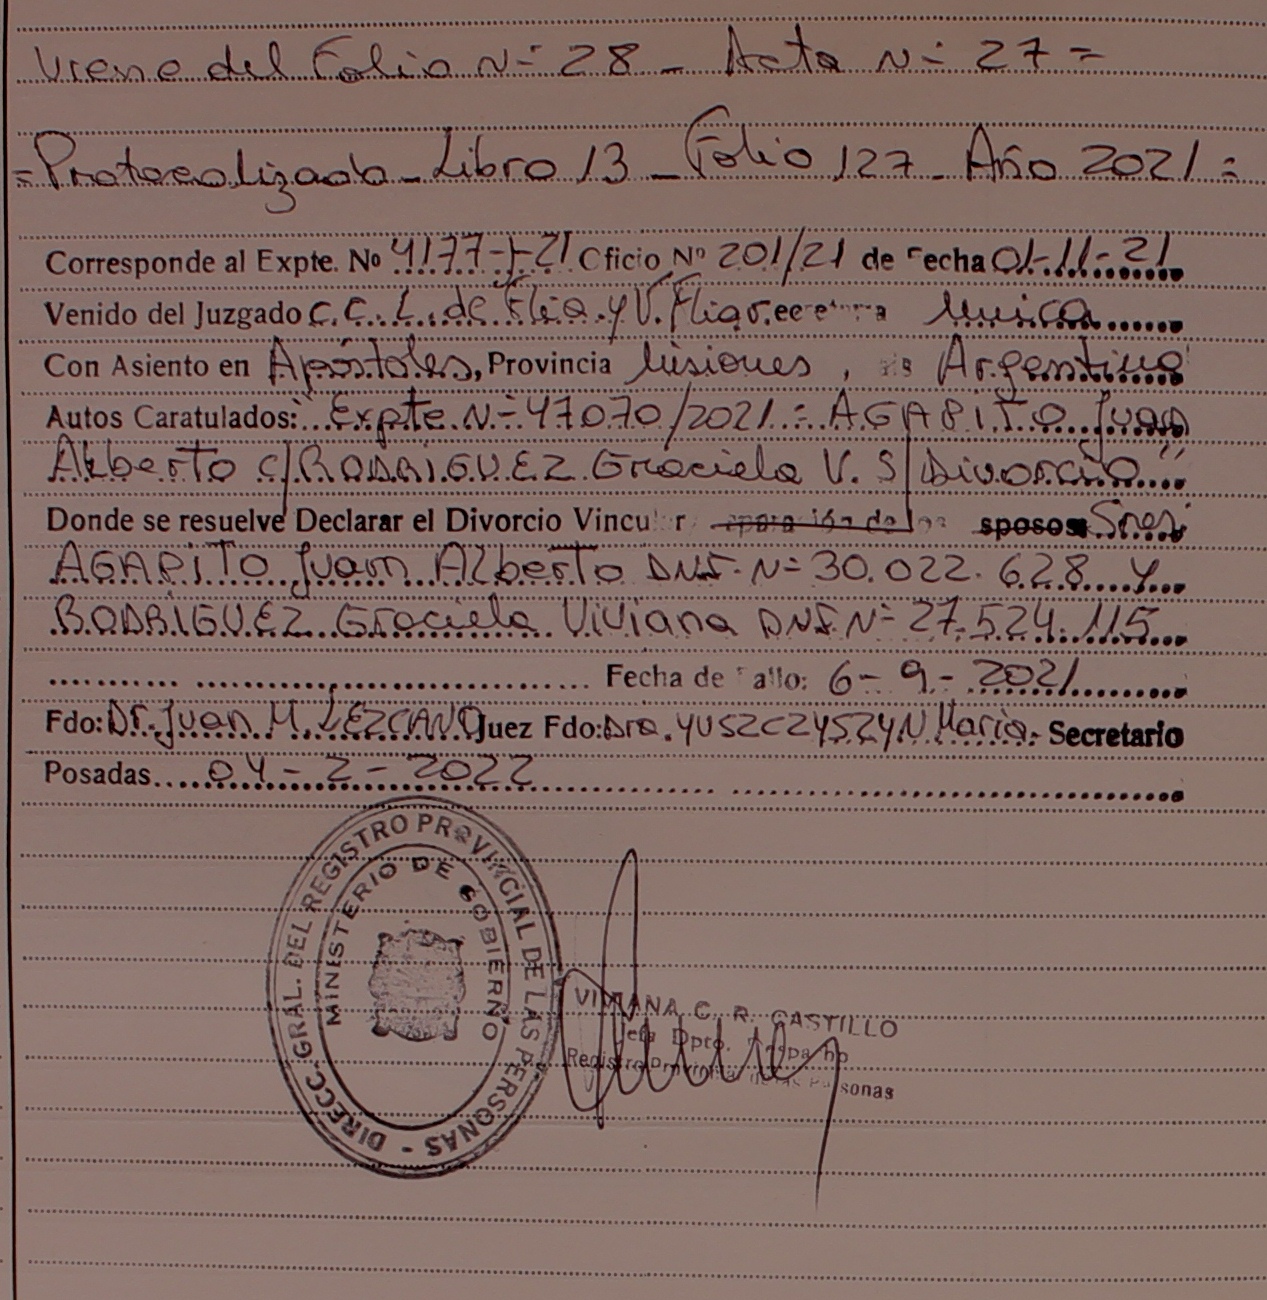 Viene del Folio N- 28 - Acta N- 27 =
= Protocolizado - Libro 13 - Folio 127 - Año 2021 =
Corresponde al Expte. No 4177-J-21 Oficio Nº 201/21 de Fecha 01-11-21
Venido del Juzgado C.C.L. de Flia. y V. Flia Secretaria Unica
Con Asiento en Apóstoles, Provincia Misiones, Argentina
Autos Caratulados: "Expte N- 47070/2021 = AGAPITO Juan
Alberto c/ RODRIGUEZ Graciela V. S/ Divorcio"
Donde se resuelve Declarar el Divorcio Vincular sposos Sres.
AGAPITO Juan Alberto DNI- N- 30.022.628 y
RODRIGUEZ Graciela Viviana DNI N- 27.524.115
Fecha de Fallo: 6-9-2021
Fdo: Dr. Juan M. LEZCANO Juez Fdo: Dra. YUSZCZYSZYN Maria - Secretario
Posadas 04-2-2022
DIRECC. GRAL. DEL REGISTRO PROVINCIAL DE LAS PERSONAS -
MINISTERIO DE GOBIERNO
VIVIANA C. R. CASTILLO
Jefa Dpto.
Registro Provincial de las Personas